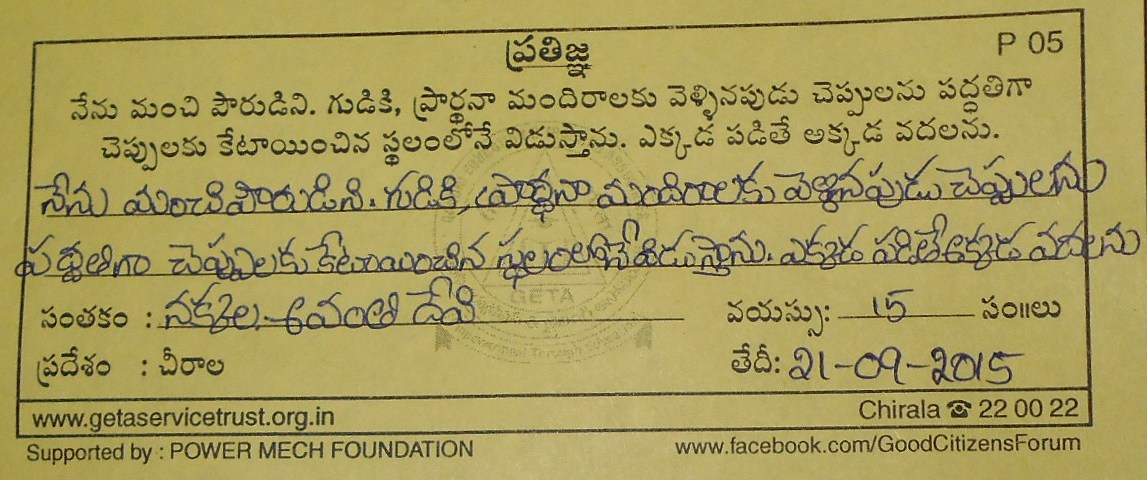 ప్రతిజ్ఞ
P 05
నేను మంచి పౌరుడిని. గుడికి, ప్రార్థనా మందిరాలకు వెళ్ళినపుడు చెప్పులను పద్ధతిగా
చెప్పులకు కేటాయించిన స్థలంలోనే విడుస్తాను. ఎక్కడ పడితే అక్కడ వదలను.
నేను మంచి పౌరుడిని. గుడికి, ప్రార్థనా మందిరాలకు వెళ్ళినపుడు చెప్పులను
పద్ధతిగా చెప్పులకు కేటాయించిన స్థలంలోనే విడుస్తాను. ఎక్కడ పడితే అక్కడ వదలను
సంతకం : నక్కల అవంతి దేవి వయస్సు: 15 సం॥లు
ప్రదేశం : చీరాల తేదీ: 21-09-2015
GETA
www.getaservicetrust.org.in Chirala ☎ 22 00 22
Supported by : POWER MECH FOUNDATION www.facebook.com/GoodCitizensForum